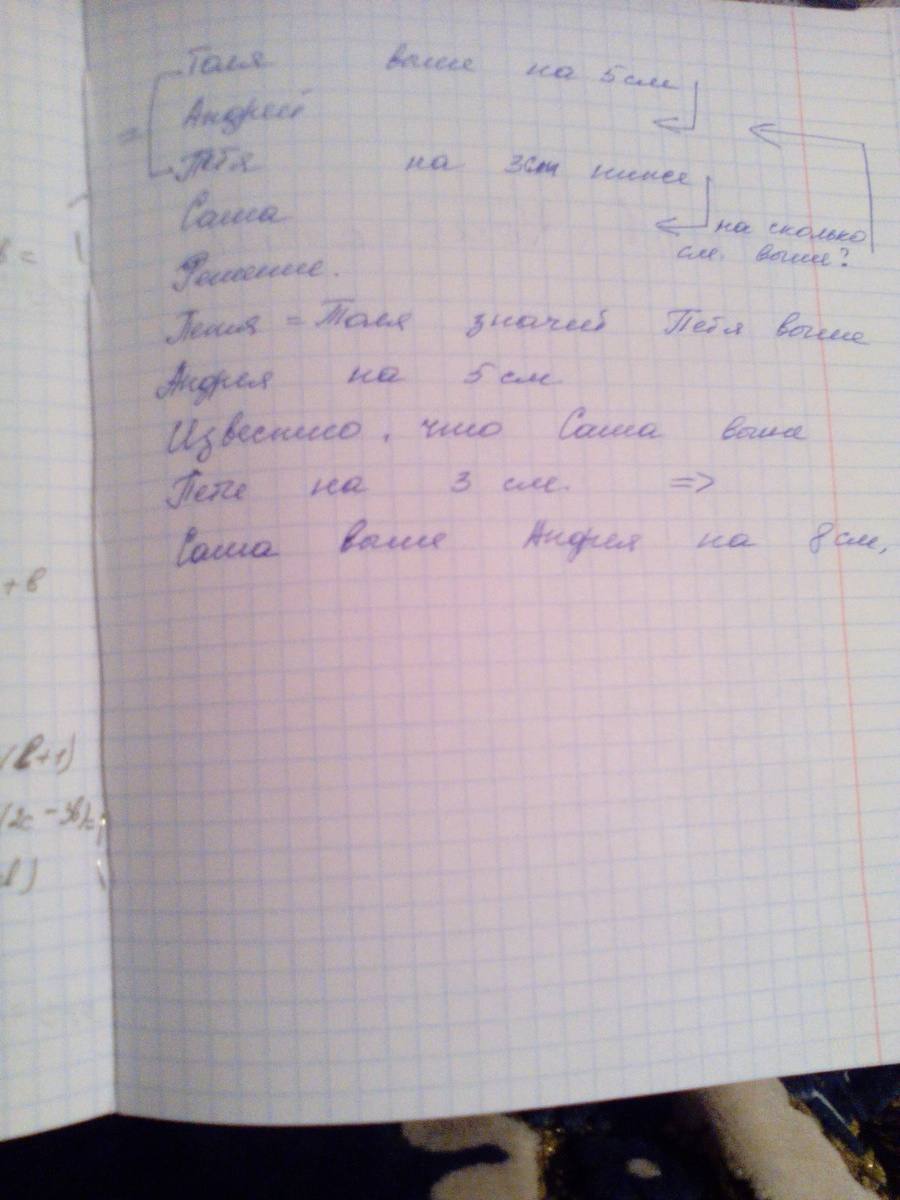 Толя выше на 5 см
Андрей
=
Петя на 3 см ниже
Саша на сколько
см. выше?
Решение.
Петя = Толя значит Петя выше
Андрея на 5 см
Известно, что Саша выше
Пети на 3 см. =>
Саша выше Андрея на 8 см,
в =
+ в
(в+1)
(2с - 3в)=
в)